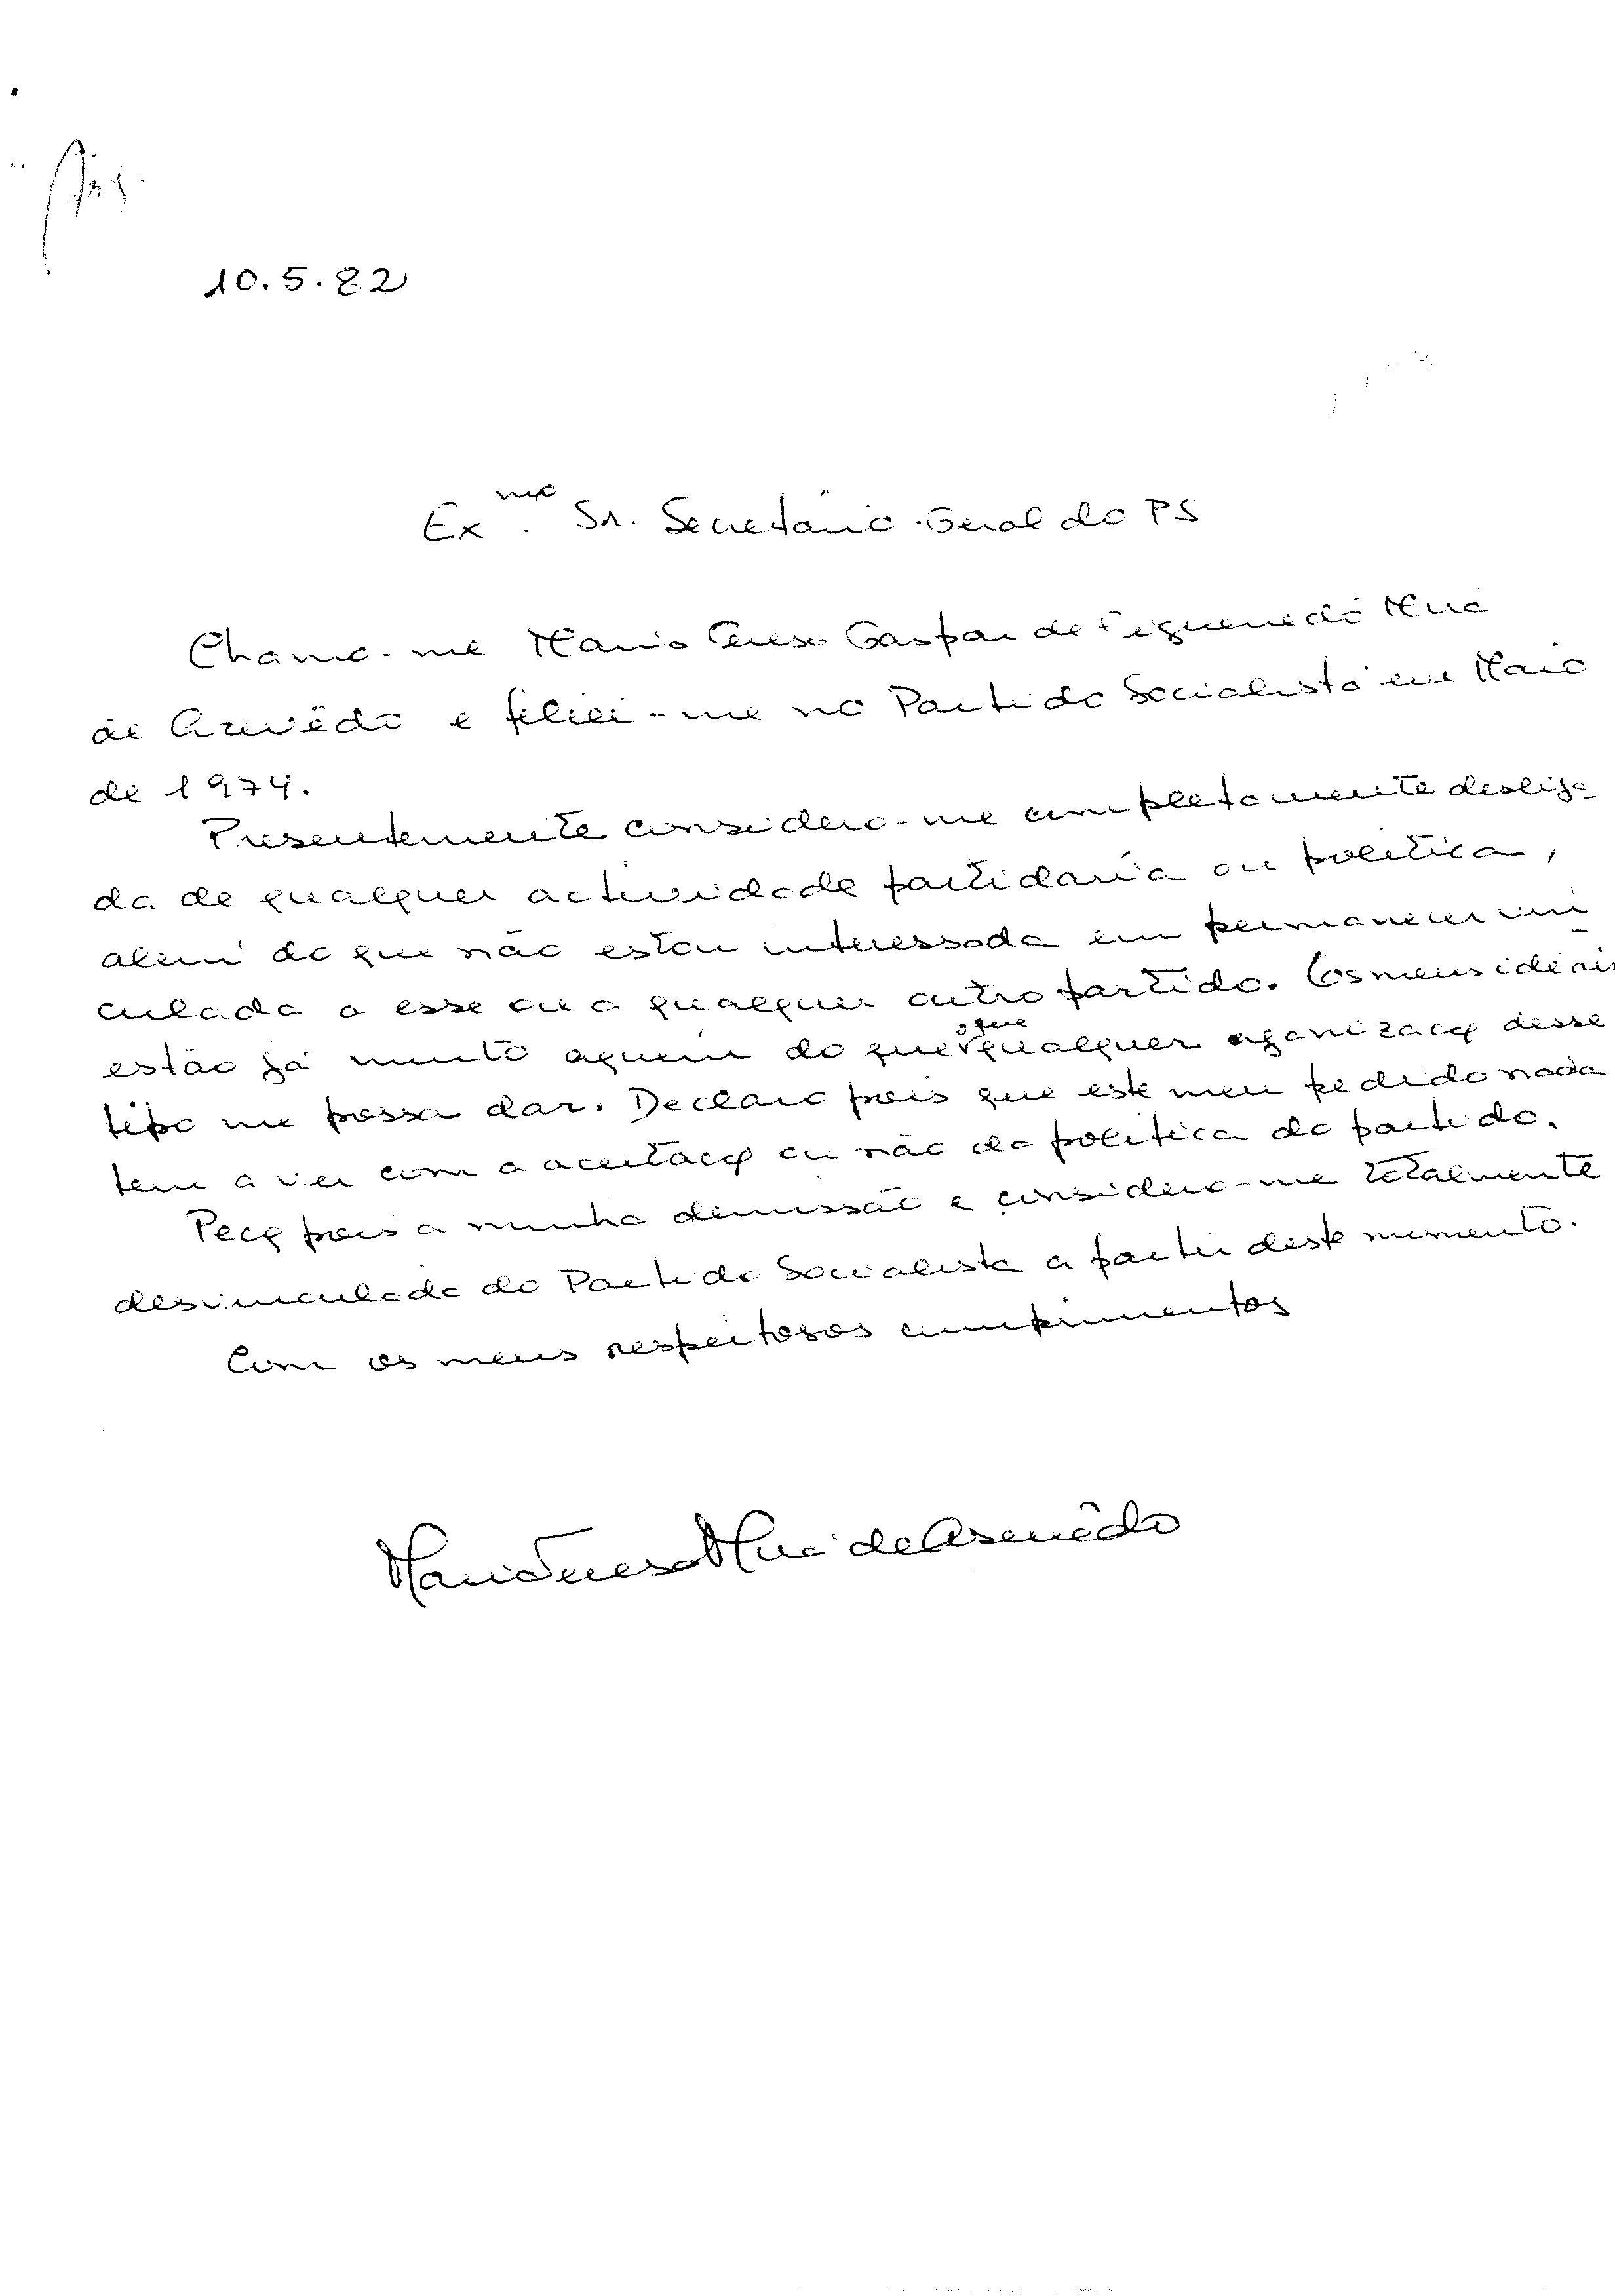 10.5.82
Exmo. Sr. Secretário-Geral do PS
Chamo-me Maria Teresa Gaspar de Figueiredo Mua
de Azevêdo e filiei-me no Partido Socialista em Maio
de 1974.
Presentemente considero-me completamente desliga
da de qualquer actividade partidária ou política,
além do que não estou interessada em permanecer vin
culada a esse ou a qualquer outro partido. Os meus ideais
estão já muito aquém do que o que qualquer organização desse
tipo me possa dar. Declaro pois que este meu pedido nada
tem a ver com a aceitação ou não da política do partido.
Peço pois a minha demissão e considero-me totalmente
desvinculada do Partido Socialista a partir deste momento.
Com os meus respeitosos cumprimentos
Maria Teresa Mua de Azevêdo